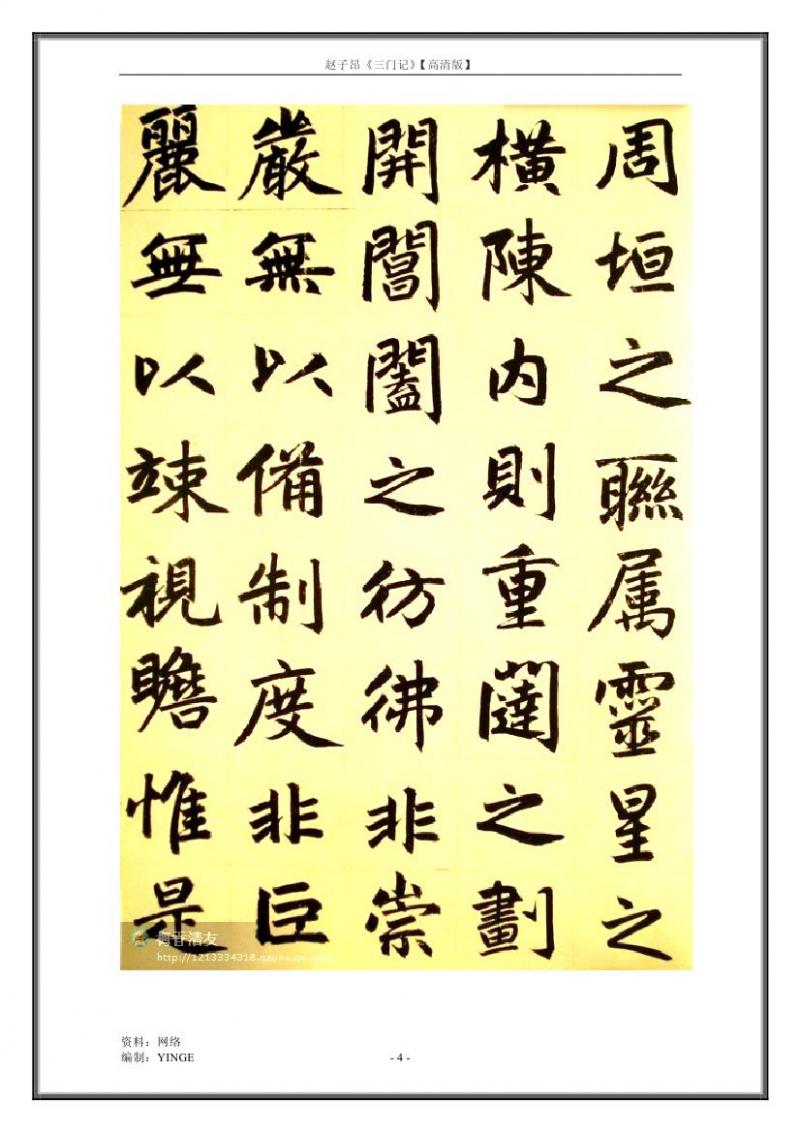 赵子昂《三门记》【高清版】
周垣之聮属靈星之
横陳内則重闥之劃
開閶闔之彷彿非崇
嚴無以備制度非巨
麗無以竦視瞻惟是
http://1213334318.qzone.qq.com
资料：网络
编制：YINGE
- 4 -